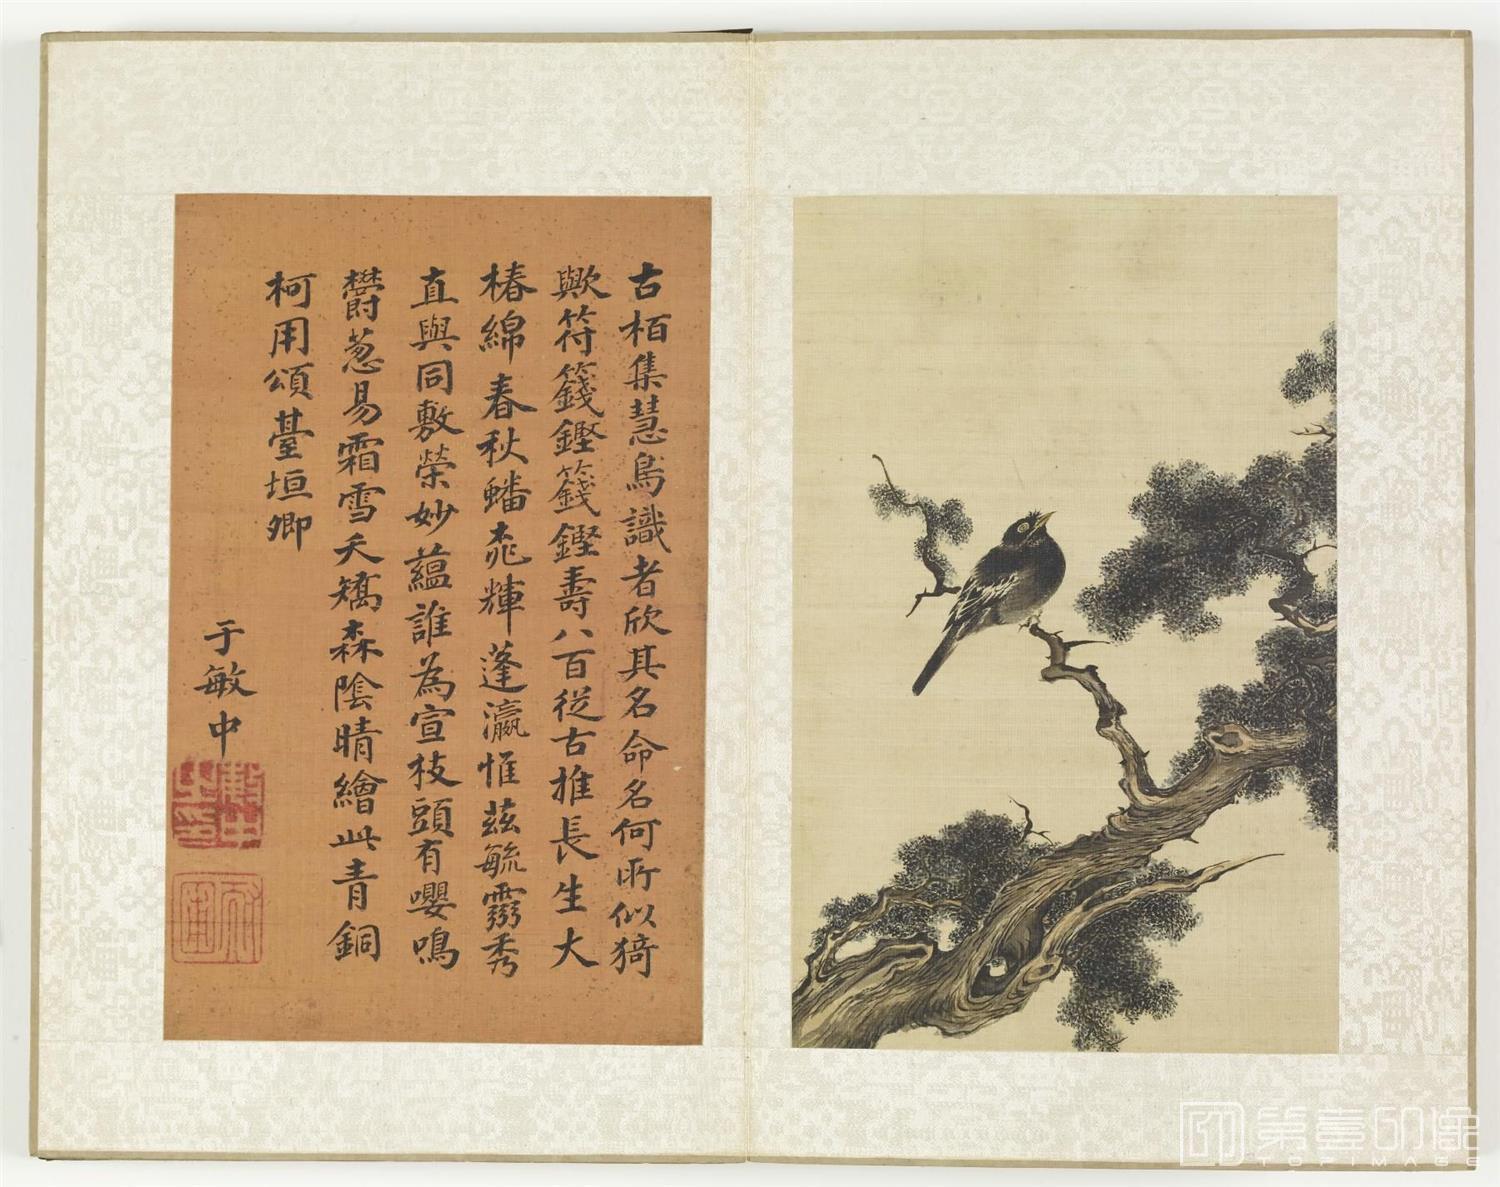 古栢集慧鳥識者欣其名命名何所似猗
歟符籛鏗籛鏗壽八百從古推長生大
椿綿春秋蟠桃輝蓬瀛惟茲毓靈秀
直與同敷榮妙蘊誰為宣枝頭有嚶鳴
欝葱易霜雪夭矯森陰晴繪此青銅
柯用頌臺垣卿
于敏中
第壹印像
TOPIMAGE